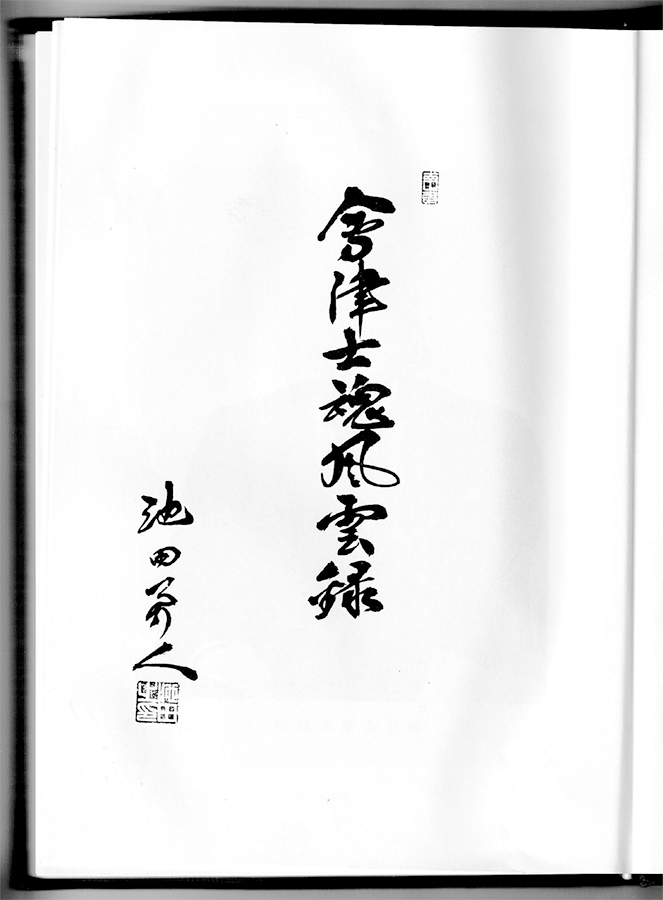 會津士魂風雲録
池田勇人